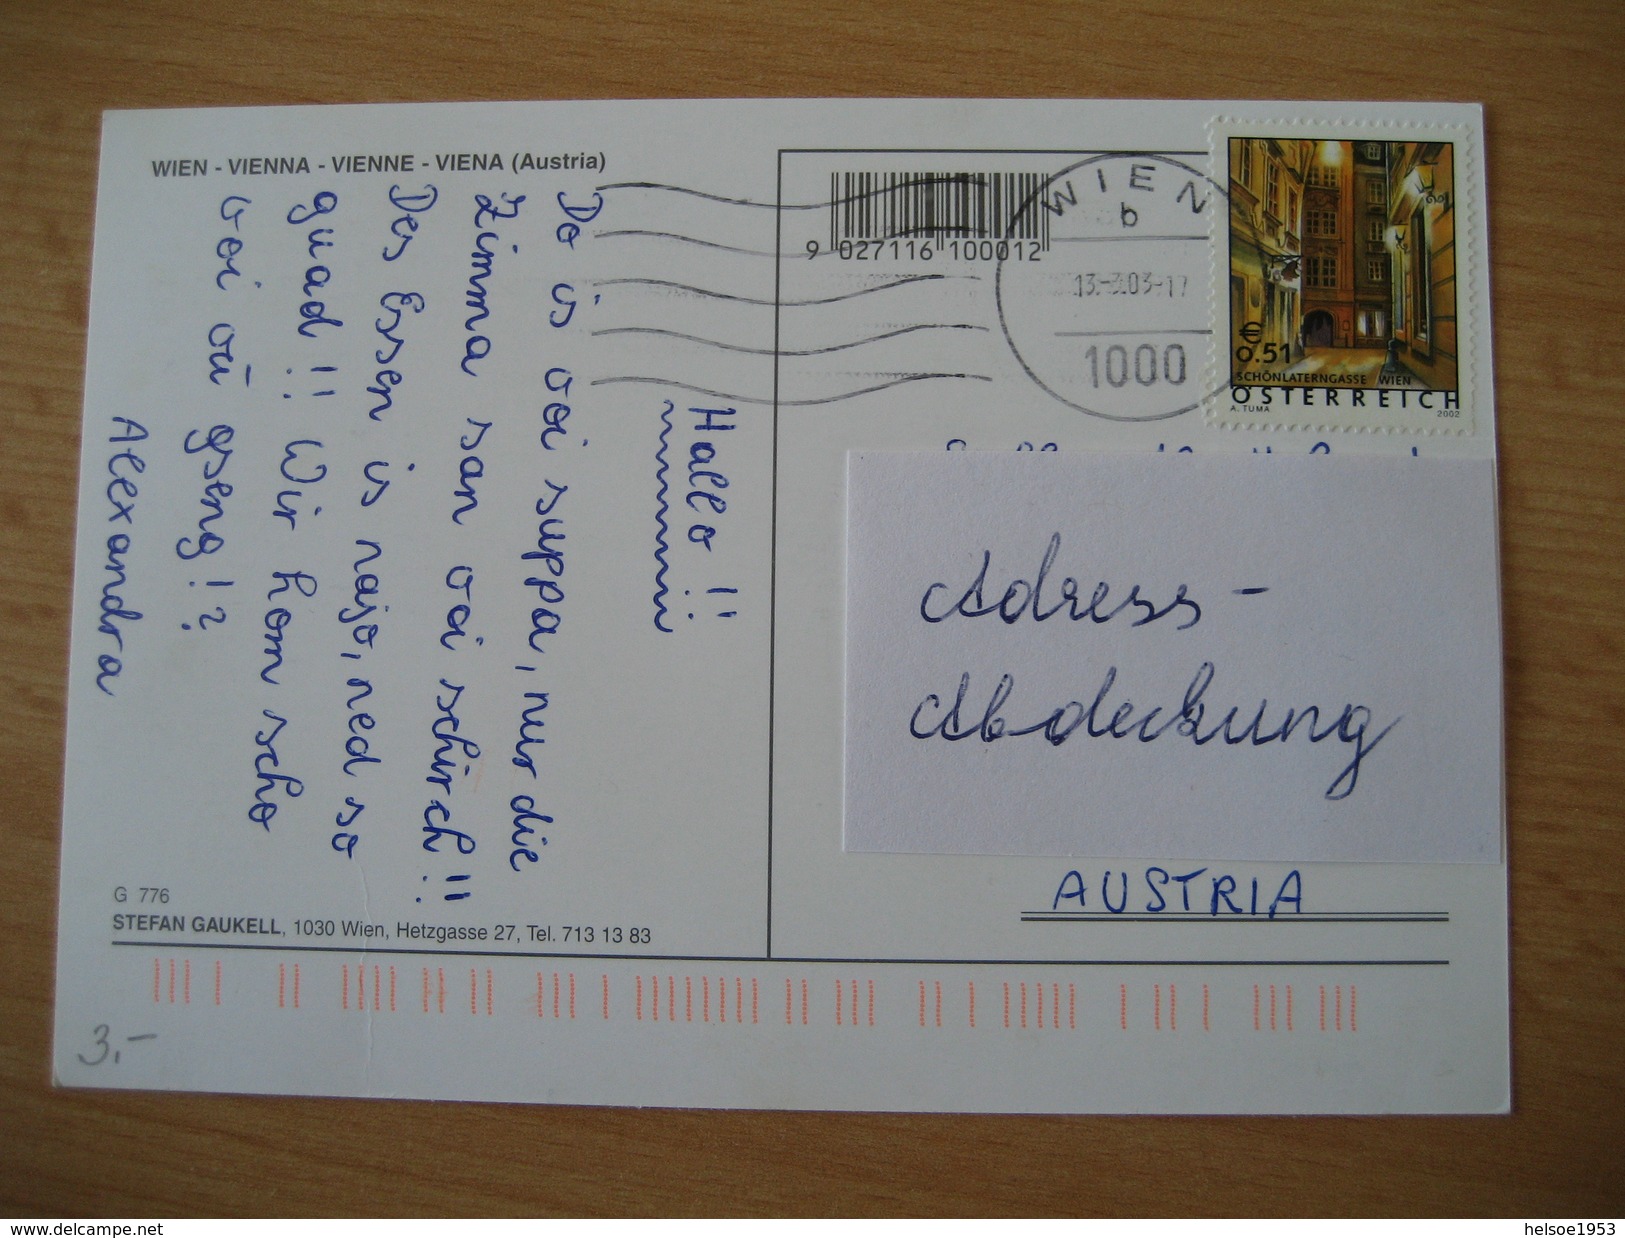 WIEN - VIENNA - VIENNE - VIENA (Austria)
Hallo!!
Do is voi suppa, nur die
Zimma san voi schirch!!
Des Essen is najo, ned so
guad!! Wir hom scho
voi vü gseng!?
Alexandra
G 776
STEFAN GAUKELL, 1030 Wien, Hetzgasse 27, Tel. 713 13 83
9 027116 100012
WIEN
b
13.-3.03-17
1000
€
0.51
SCHÖNLATERNGASSE WIEN
ÖSTERREICH
A. TUMA 2002
Adress-
Abdeckung
AUSTRIA
3,-
www.delcampe.net
helsoe1953